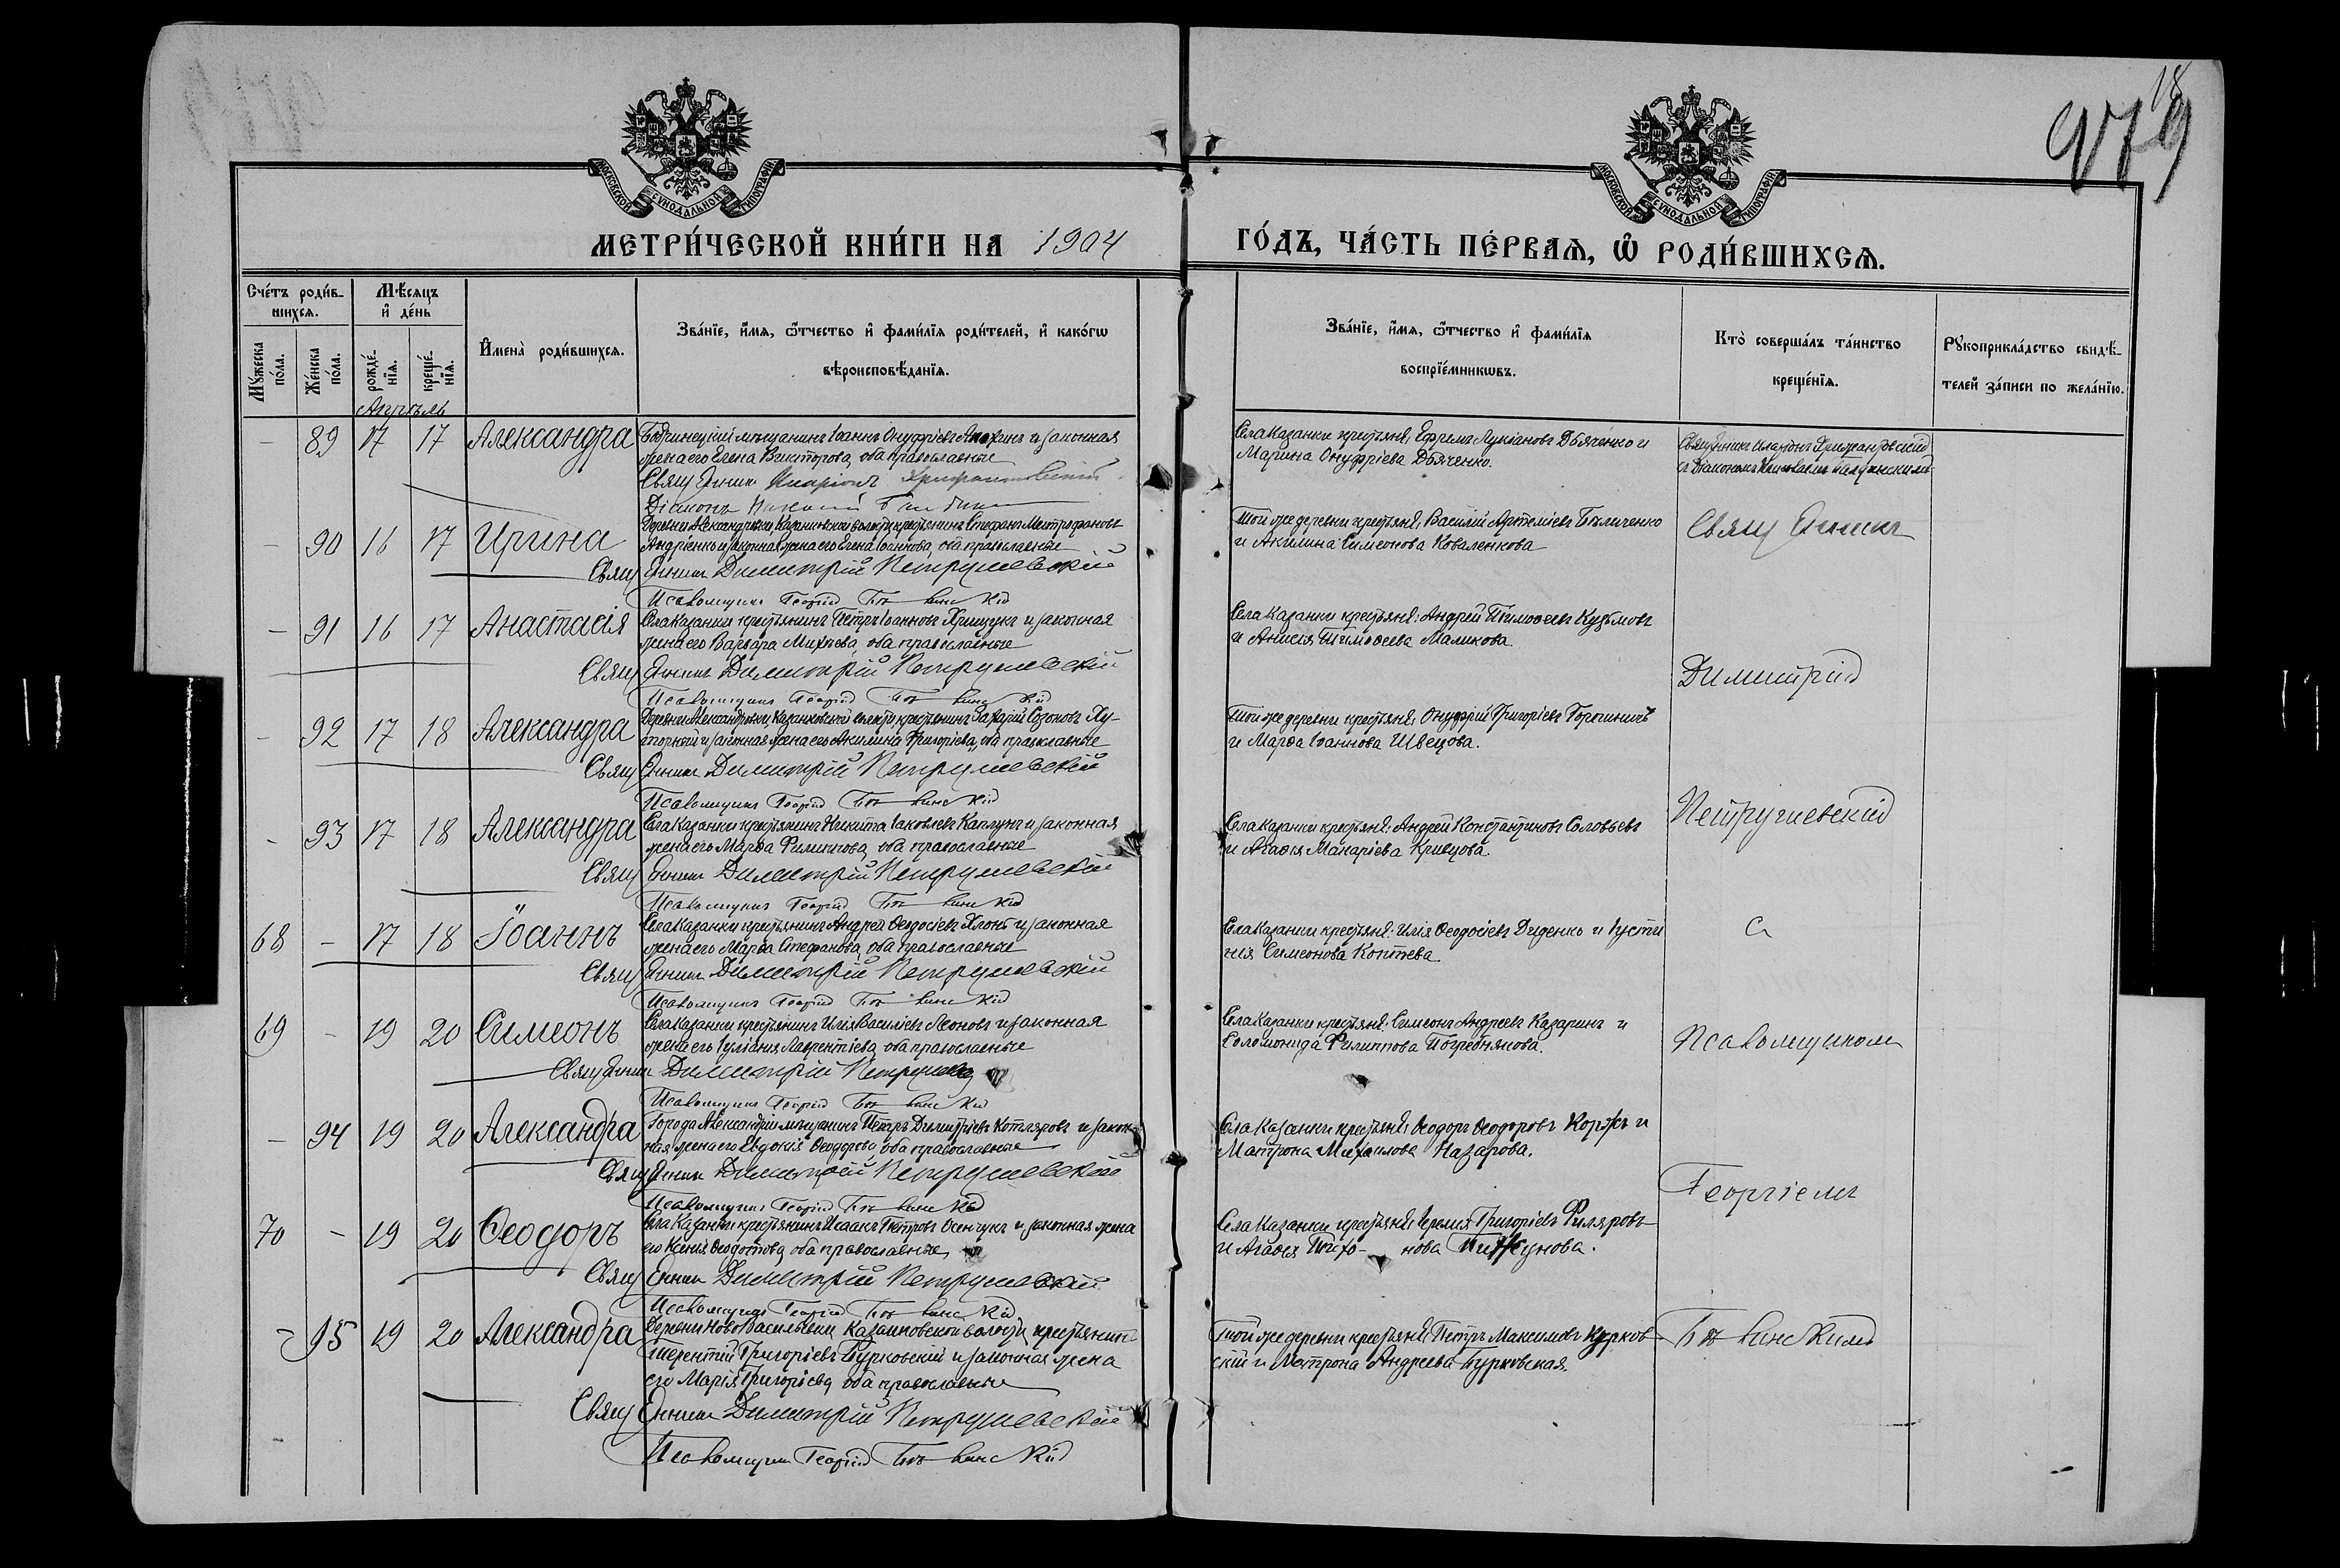 18
979
МОСКОВСКОЙ СѴНОДАЛЬНОЙ ТИПОГРАФІИ
МОСКОВСКОЙ СѴНОДАЛЬНОЙ ТИПОГРАФІИ
МЕТРИ́ЧЕСКОЙ КНИ́ГИ НА 1904
ГО́ДЪ, ЧА́СТЬ ПЕ́РВАѦ, Ѽ РОДИ́ВШИХСѦ.
Сче́тъ роди́в-
шихсѧ.
Мꙋ́жеска по́ла.
Же́нска по́ла.
Мѣ́сѧцъ и҆ де́нь
рожде́-нїѧ.
креще́-нїѧ.
И҆мена̀ роди́вшихсѧ.
Зва́нїе, и҆́мѧ, ѻ҆́тчество и҆ фами́лїѧ роди́телей, и҆ како́гѡ
вѣроисповѣ́данїѧ.
Зва́нїе, и҆́мѧ, ѻ҆́тчество и҆ фами́лїѧ
воспрїе́мникѡвъ.
Кто̀ соверша́лъ та́инство
креще́нїѧ.
Рꙋкоприкла́дство свидѣ́-
телей за́писи по жела́нїю.
Апрѣль
– 89 17 17 Александра
Бобринецкій мѣщанинъ Іоаннъ Онуфріевъ и законная
жена его Елена Викторова, оба православные
Священникъ Иларіонъ
Діаконъ
Села Казанки крестьяне: Ефремъ Лукіановъ Дьяченко и
Марина Онуфріева Дьяченко.
Священникъ Иларіонъ
съ діакономъ
– 90 16 17 Ирина
Деревни Александровки Казанковской волости крестьянинъ Стефанъ Митрофановъ
Андріенко и законная жена его Елена Іоаннова, оба православные
Священникъ Димитрій Петрушевскій
Псаломщикъ Георгій
Той же деревни крестьяне: Василій Артеміевъ Бѣличенко
и Акилина Симеонова Коваленкова
Священникъ
– 91 16 17 Анастасія
Села Казанки крестьянинъ Петръ Іоанновъ Хрищукъ и законная
жена его Варвара Михѣева, оба православные
Священникъ Димитрій Петрушевскій
Псаломщикъ Георгій
Села Казанки крестьяне: Андрей Тимоѳеевъ Кузьмовъ
и Анисія Тимоѳеева Маликова.
Димитрій
– 92 17 18 Александра
Деревни Александровки, Казанковской волости крестьянинъ Захарій Созоновъ Ху-
торной и законная жена его Акилина Григоріева, оба православные
Священникъ Димитрій Петрушевскій
Псаломщикъ Георгій
Той же деревни крестьяне: Онуфрій Григоріевъ
и Марѳа Іоаннова Швецова.
Петрушевскій
- 93 17 18 Александра
Села Казанки крестьянинъ Никита Іаковлевъ Каплунъ и законная
жена его Марѳа Филиппова, оба православные
Священникъ Димитрій Петрушевскій
Псаломщикъ Георгій
Села Казанки крестьяне: Андрей Константиновъ Соловьевъ
и Агаѳія Макаріева Кривцова
68 – 17 18 Іоаннъ
Села Казанки крестьянинъ Андрей Ѳеодосіевъ и законная
жена его Марѳа Стефанова, оба православные
Священникъ Димитрій Петрушевскій
Псаломщикъ Георгій
Села Казанки крестьяне: Илія Ѳеодосіевъ Диденко и Іусти
нія Симеонова Коптева.
съ
69 – 19 20 Симеонъ
Села Казанки крестьянинъ Илія Василіевъ Леоновъ и законная
жена его Іуліанія Лаврентіева, оба православные
Священникъ Димитрій
Псаломщикъ Георгій
Села Казанки крестьяне: Симеонъ Андреевъ Казаринъ и
Соломонида Филиппова Погребнякова.
Псаломщикомъ
– 94 19 20 Александра
Города Александріи мѣщанинъ Петръ Димитріевъ Котляровъ и закон
ная жена его Евдокія Ѳеодорова, оба православные
Священникъ Димитрій Петрушевскій
Псаломщикъ Георгій
Села Казанки крестьяне: Ѳеодоръ Ѳеодоровъ Коржъ и
Матрона Михаилова Назарова.
Георгіемъ
70 – 19 20 Ѳеодоръ
Села Казанки крестьянинъ Исаакъ Петровъ Осенчукъ и законная жена
его Ксенія Ѳеодотова, оба православные,
Священникъ Димитрій Петрушевскій
Псаломщикъ Георгій
Села Казанки крестьяне: Іеремія Григоріевъ Филяровъ
и Агаѳія Тихо- нова
– 95 19 20 Александра
Деревни Ново Васильевки Казанковской волости крестьянинъ
Терентій Григоріевъ Бурковскій и законная жена
его Марія Григоріева, оба православные
Священникъ Димитрій Петрушевскій
Псаломщикъ Георгій
Той же деревни крестьяне: Петръ Максимовъ Курков
скій и Матрона Андреева Бурковская.